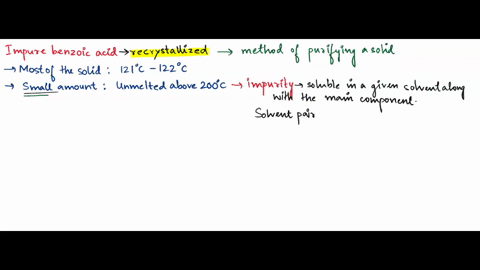 Impure benzoic acid → recrystallized → method of purifying a solid
→ Most of the solid : 121°C - 122°C
→ Small amount : Unmelted above 200°C → impurity → soluble in a given solvent along
with the main component.
Solvent pair